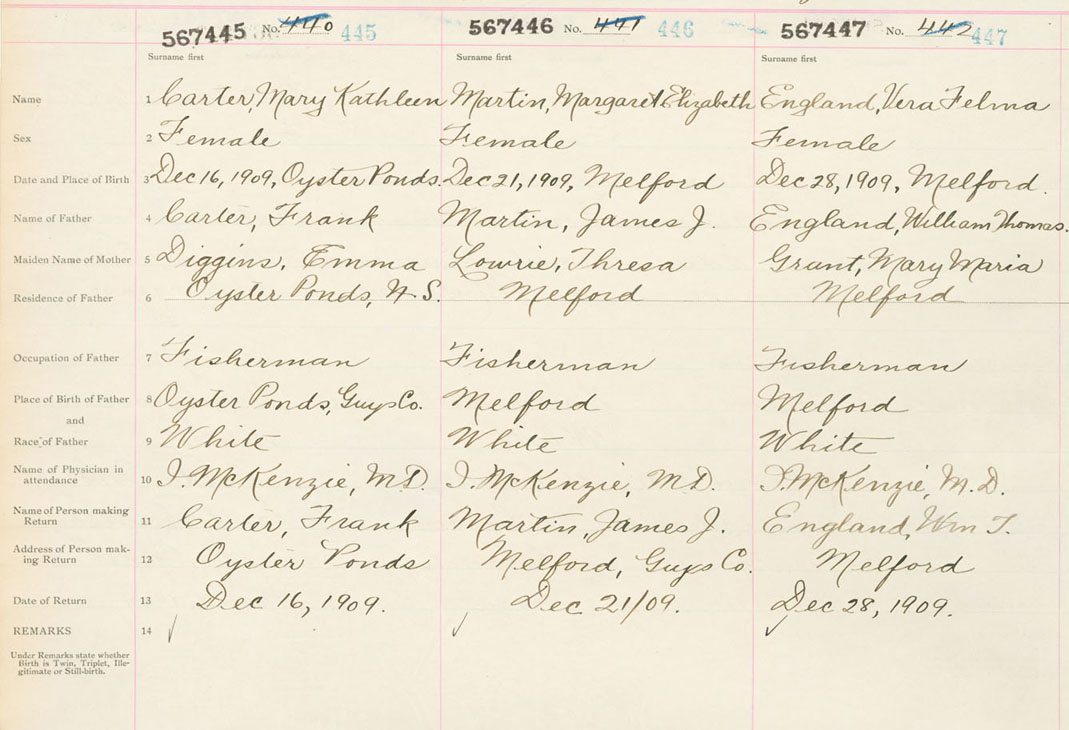 567445 No. 440 445 567446 No. 441 446 567447 No. 442 447
Surname first Surname first Surname first
Name 1 Carter, Mary Kathleen Martin, Margaret Elizabeth England, Vera Felma
Sex 2 Female Female Female
Date and Place of Birth 3 Dec 16, 1909, Oyster Ponds. Dec 21, 1909, Melford Dec 28, 1909, Melford.
Name of Father 4 Carter, Frank Martin, James J. England, William Thomas.
Maiden Name of Mother 5 Diggins, Emma Lowrie, Thresa Grant, Mary Maria
Residence of Father 6 Oyster Ponds, N.S. Melford Melford
Occupation of Father 7 Fisherman Fisherman Fisherman
Place of Birth of Father 8 Oyster Ponds, Guys Co. Melford Melford
and
Race of Father 9 White White White
Name of Physician in
attendance 10 J. McKenzie, M.D. J. McKenzie, M.D. J. McKenzie, M.D.
Name of Person making
Return 11 Carter, Frank Martin, James J. England, Wm T.
Address of Person mak-
ing Return 12 Oyster Ponds Melford, Guys Co. Melford
Date of Return 13 Dec 16, 1909. Dec 21/09. Dec 28, 1909.
REMARKS 14
Under Remarks state whether
Birth is Twin, Triplet, Ille-
gitimate or Still-birth.